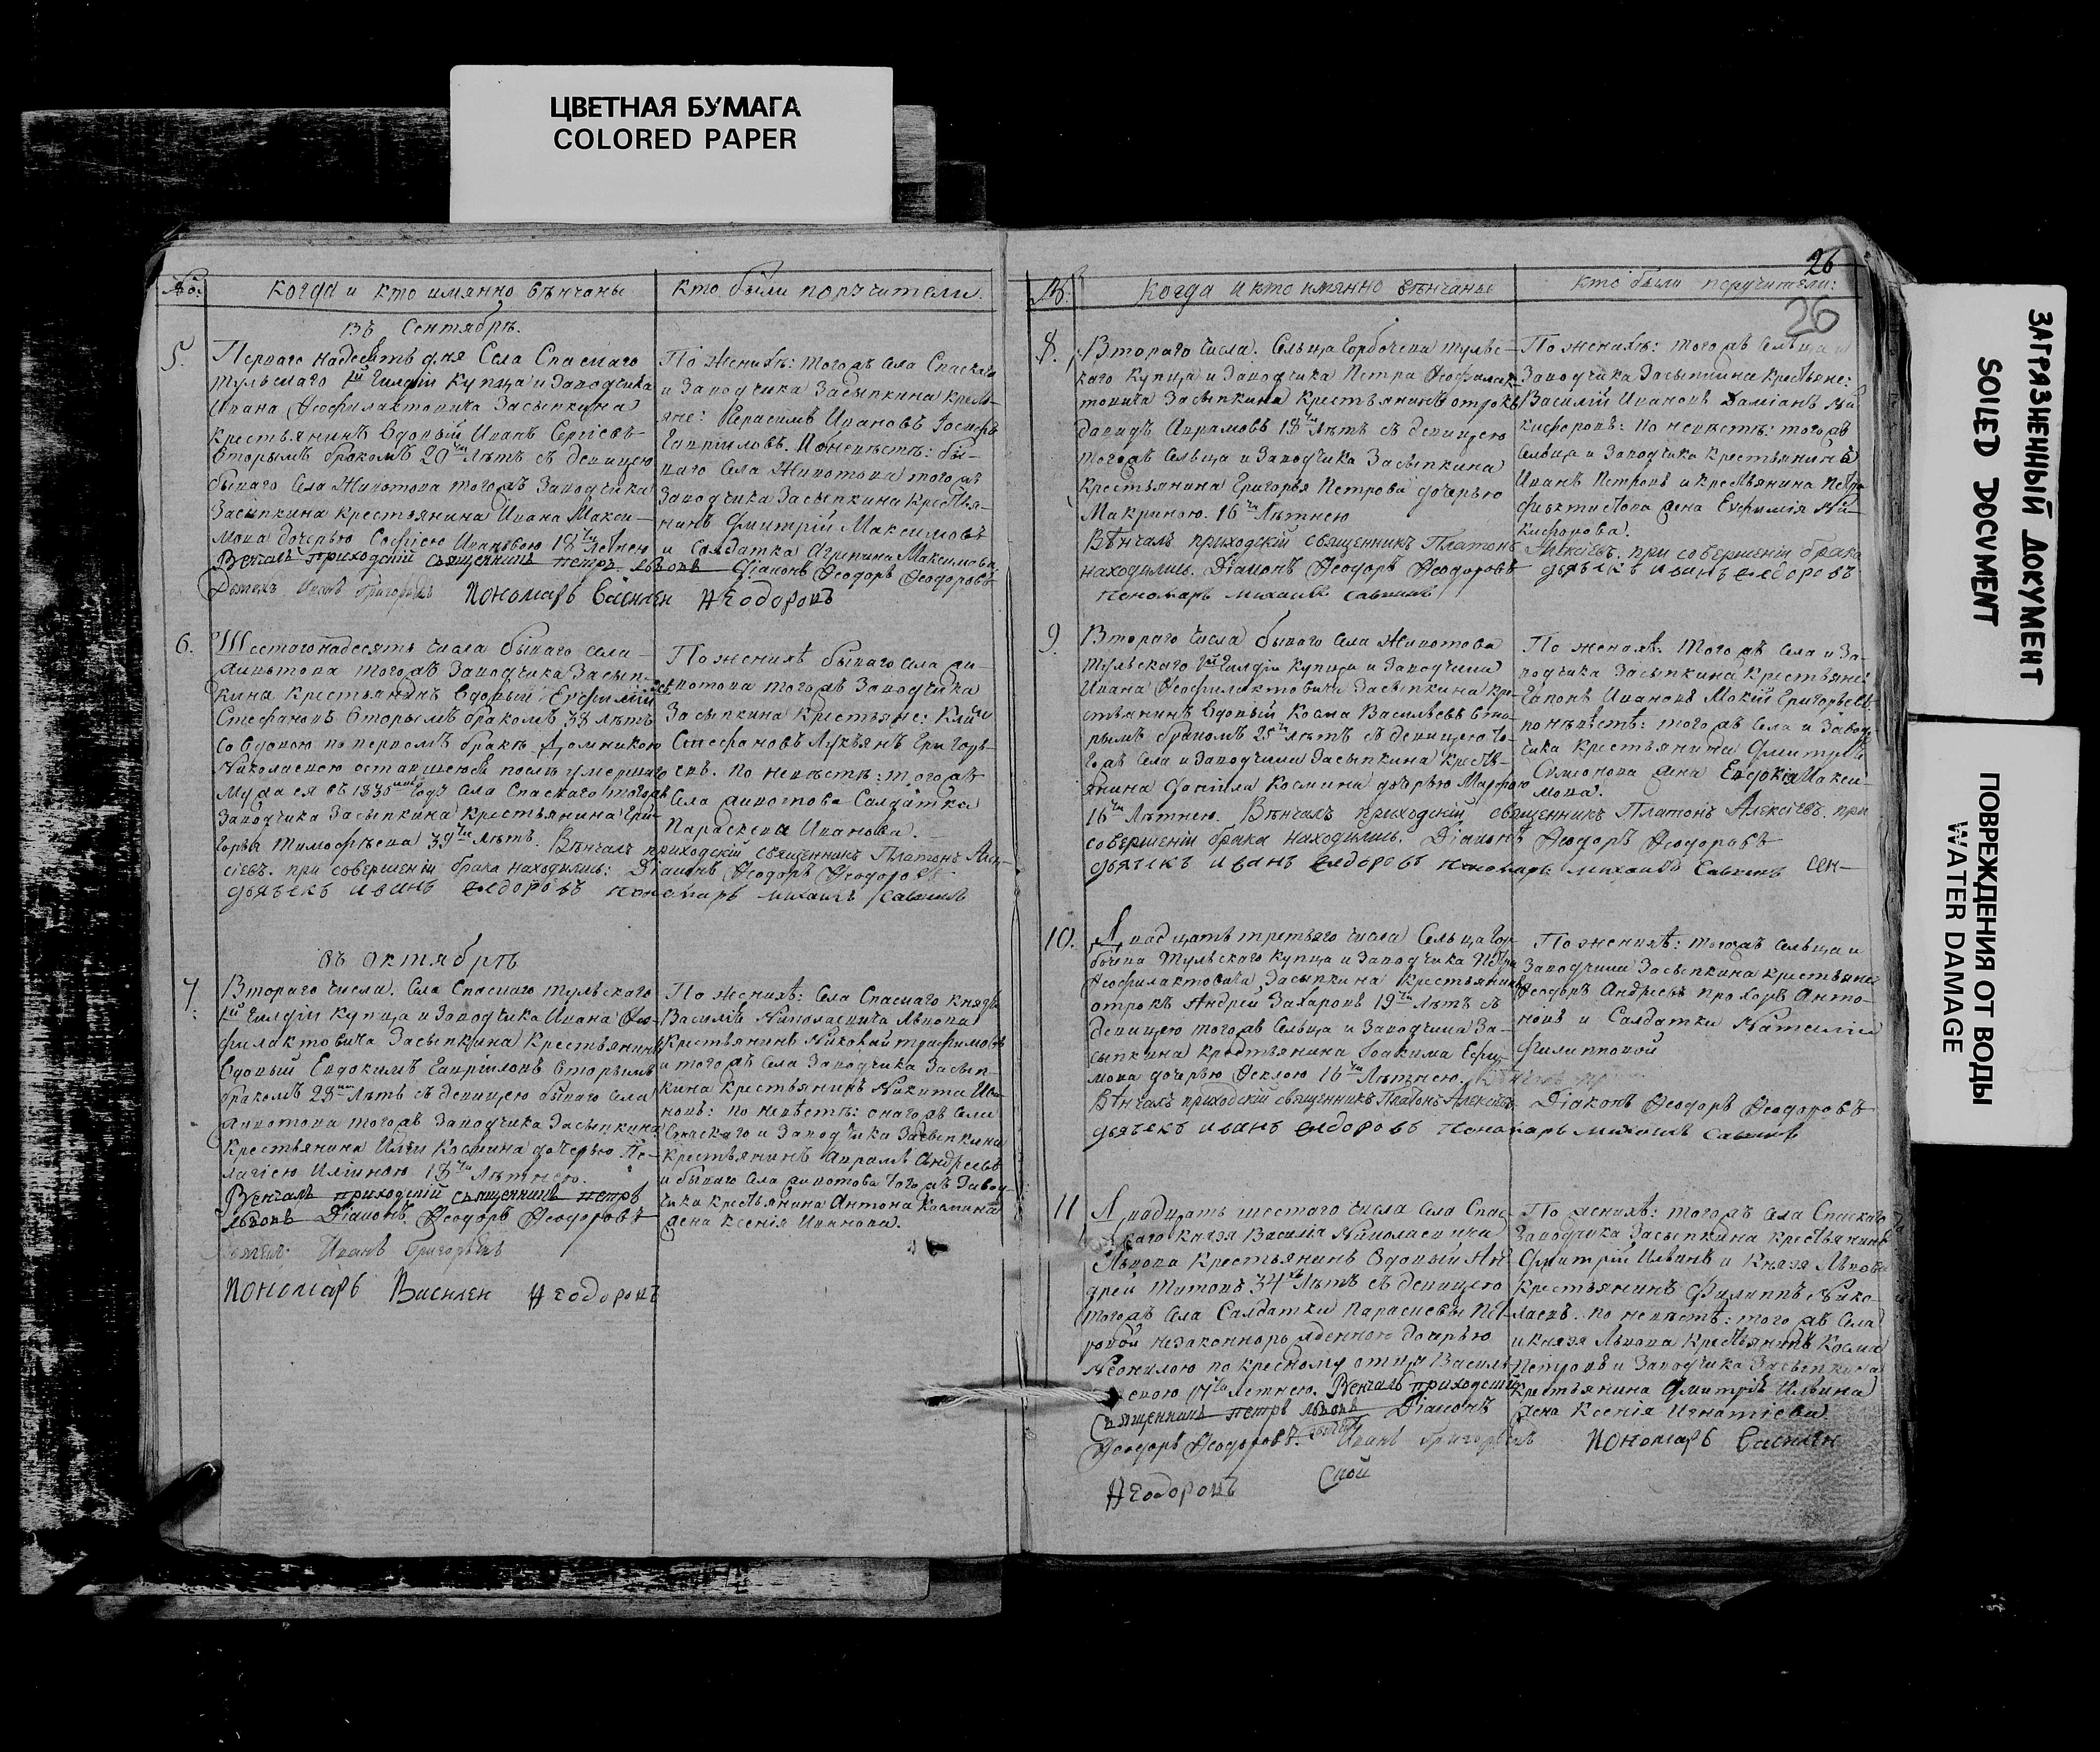 ЦВЕТНАЯ БУМАГА
COLORED PAPER
ЗАГРЯЗНЕННЫЙ ДОКУМЕНТ
SOILED DOCUMENT
ПОВРЕЖДЕНИЯ ОТ ВОДЫ
WATER DAMAGE
№о:
Когда и кто имянно вѣнчаны
кто были поручители.
Въ Сентябрѣ.
5.
Перваго надесять дня Села Спаскаго
тульскаго 1й Гилдіи купца и Заводчика
Ивана Ѳеофилактовича Засыпкина
крестьянинъ вдовый Иванъ Сергѣевъ
вторымъ бракомъ 20 лѣтъ съ девицею
бываго Села Животова тогожъ Заводчика
Засыпкина крестьянина Ивана Макси-
мова дочерью Софіею Ивановою 18 летнею
Венчалъ приходскій священникъ петръ львовъ Діаконъ Ѳеодоръ Ѳеодоровъ
Иванъ Григорьевъ Пономарь Василеи Ѳеодоровъ
По Женихѣ: тогожъ Села Спаскаго
и Заводчика Засыпкина кресть-
яне: Герасимъ Ивановъ Іосифъ
Гавриловъ. По невѣстѣ: бы-
ваго Села Животова тогожъ
Заводчика Засыпкина крестья-
нинъ Дмитрій Максимовъ
и Салдатка Агрипина Максимова
6.
Шестогонадесять числа бываго села
Животова тогожъ Заводчика Засып-
кина крестьянинъ вдовый Ефимій
Стефановъ вторымъ бракомъ 38 лѣтъ
со вдовою по первомъ бракѣ Домникою
Николаевою оставшеюся послѣ умершаго
мужа ея въ 1836 году Села Спаскаго тогожъ
Заводчика Засыпкина крестьянина Гри-
горья Тимофѣева 39 лѣтъ. Вѣнчалъ приходскій священникъ Платонъ Алек-
сіевъ. при совершеніи брака находились: Діаконъ Ѳеодоръ Ѳеодоровъ
дьячекъ иванъ ѳедоровъ пономарь михаилъ савинъ
По женихѣ бываго села жи-
вотова тогожъ Заводчика
Засыпкина крестьяне:
Стефановъ Лукьянъ Григорь-
евъ. По невѣстѣ: тогожъ
Села животова Салдатка
Параскева Иванова.
въ октябрѣ
7.
Втораго числа. Села Спаскаго тульскаго
1й Гилдіи купца и Заводчика Ивана Ѳео-
филактовича Засыпкина крестьянинъ
вдовый Евдокимъ Гавриловъ вторымъ
бракомъ 28 лѣтъ съ девицею бываго села
животова тогожъ Заводчика Засыпкина
крестьянина Ильи Косьмина дочерью Пе-
лагіею Ильиною 18 лѣтнею.
Венчалъ приходскій священникъ петръ
львовъ Діаконъ Ѳеодоръ Ѳеодоровъ
Иванъ Григорьевъ
Пономарь Василеи Ѳеодоровъ
По женихѣ: Села Спаскаго князя
Василія Николаевича Львова
крестьянинъ Николай трафимовъ
и тогожъ села Заводчика Засып-
кина крестьянинъ Никита Ива-
новъ: по невѣстѣ: онагожъ села
Спаскаго и Заводчика Засыпкина
крестьянинъ Аврамъ Андреевъ
и бываго Села животова тогожъ Завод-
чика крестьянина Антона Косьмина
жена Ксенія Иванова.
26
26
№.
Когда и кто имянно вѣнчаны
кто были поручители:
8.
Втораго числа. Сельца Горбочева тульс-
каго купца и Заводчика Петра Ѳеофилак-
товича Засыпкина крестьянинъ отрокъ
Давидъ Аврамовъ 18 лѣтъ съ девицею
тогожъ Сельца и Заводчика Засыпкина
крестьянина Григорья Петрова дочерью
Макриною. 16 лѣтнею
Вѣнчалъ приходскій священникъ Платонъ Алексіевъ. при совершеніи брака
находились. Діаконъ Ѳеодоръ Ѳеодоровъ дьячекъ иванъ ѳедоровъ
пономарь михаилъ савинъ
По женихѣ: тогожъ Сельца и
Заводчика Засыпкина крестьяне:
Василій Ивановъ Даміанъ Ни-
кифоровъ: по невѣстѣ: тогожъ
Сельца и Заводчика крестьянинъ
Иванъ Петровъ и крестьянина Петра
жена Ефимія Ни-
кифорова.
9.
Втораго числа бываго села Животова
тульскаго 1й Гилдіи купца и Заводчика
Ивана Ѳеофилактовича Засыпкина кре-
стьянинъ вдовый Косма Васильевъ вто-
рымъ бракомъ 25 лѣтъ съ девицею то-
гожъ Села и Заводчика Засыпкина кресть-
янина Даніила Космина дочерью Марфою
16 лѣтнею. Вѣнчалъ приходскій священникъ Платонъ Алексіевъ. при
совершеніи брака находились. Діаконъ Ѳеодоръ Ѳеодоровъ
дьячекъ иванъ ѳедоровъ пономарь михаилъ савинъ
По женихѣ: тогожъ Села и За-
водчика Засыпкина крестьяне:
Гапонъ Ивановъ Мокій Григорьевъ.
по невѣстѣ: тогожъ Села и Завод-
чика крестьянина Дмитрія
Симеонова жена Евдокія Макси-
мова.
10.
Двадцать третьяго числа Сельца Гор-
бочева Тульскаго купца и Заводчика Петра
Ѳеофилактовича Засыпкина крестьянинъ
отрокъ Андрей Захаровъ 19 лѣтъ съ
девицею тогожъ Сельца и Заводчика За-
сыпкина крестьянина Іоакима Ефи-
мова дочерью Ѳеклою 16 лѣтнею.
Вѣнчалъ приходскій священникъ Платонъ Алексіевъ. Діаконъ Ѳеодоръ Ѳеодоровъ
дьячекъ иванъ ѳедоровъ пономарь михаилъ савинъ
По женихѣ: тогожъ Сельца и
Заводчика Засыпкина крестьяне
Ѳеодоръ Андреевъ прохоръ Анто-
новъ и Салдатки Наталіи
Филипповой
11
Двадцать шестаго числа Села Спас-
каго князя Василія Николаевича
Львова крестьянинъ вдовый Ан-
дрей Титовъ 34 лѣтъ съ девицею
тогожъ Села Салдатки Параскевы Пет-
ровой незаконнорожденною дочерью
Неонилою по кресному отцу Василь-
евою 17 летнею. Венчалъ приходскій
священникъ петръ львовъ Діаконъ
Ѳеодоръ Ѳеодоровъ. Иванъ Григорьевъ Пономарь Василеи
Ѳеодоровъ
По женихѣ: тогожъ Села Спаскаго
Заводчика Засыпкина крестьянинъ
Дмитрій Ильинъ и князя Львова
крестьянинъ Филиппъ Нико-
лаевъ. по невѣстѣ: тогожъ Села
и князя Львова крестьянинъ Косма
Петровъ и Заводчика Засыпкина
крестьянина Дмитрія Ильина
жена Ксенія Игнатіева.